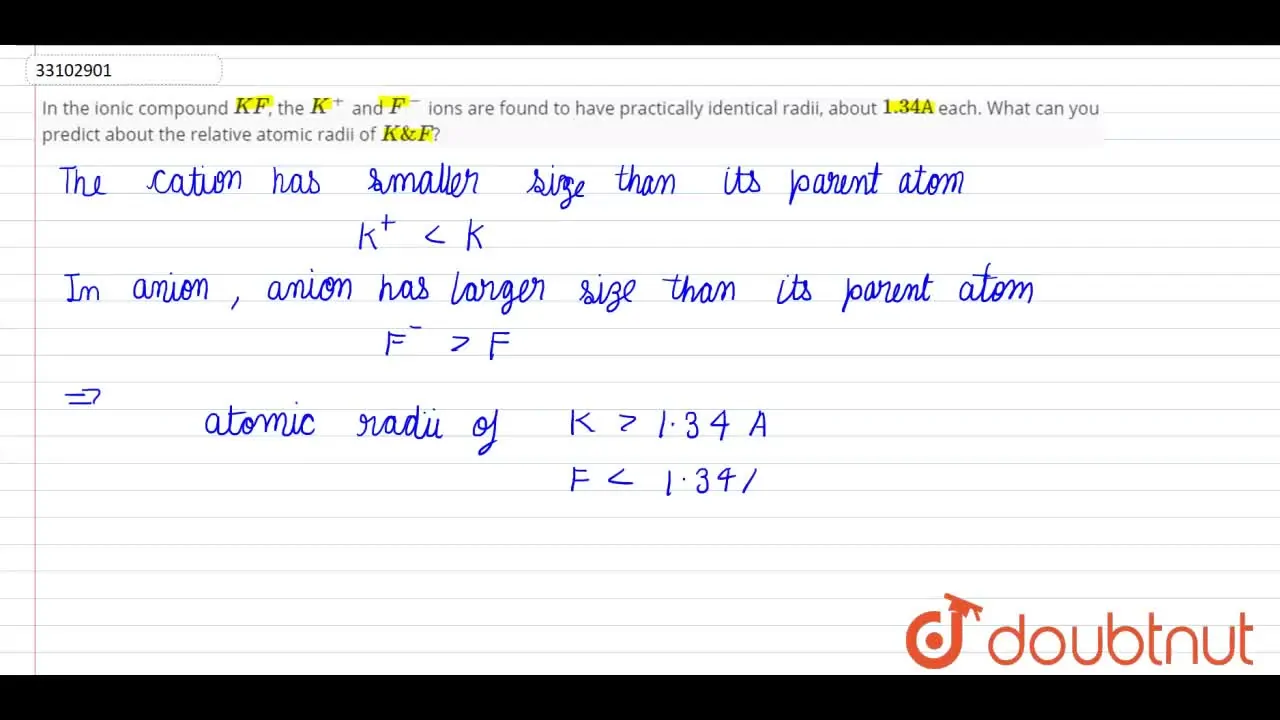 33102901
In the ionic compound KF, the K⁺ and F⁻ ions are found to have practically identical radii, about 1.34A each. What can you
predict about the relative atomic radii of K&F?
The cation has smaller size than its parent atom
K⁺ < K
In anion, anion has larger size than its parent atom
F⁻ > F
⇒
atomic radii of K > 1.34 A
F < 1.34/
doubtnut